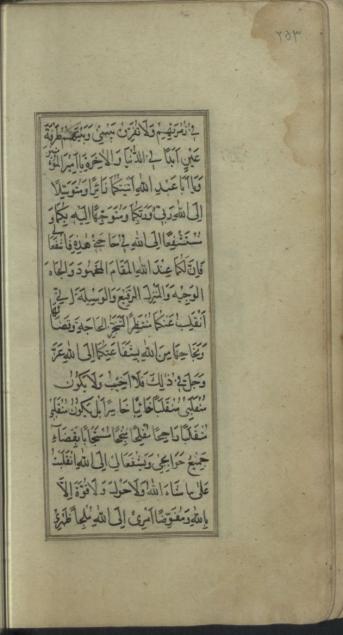 ٢٥٣
فِي زُمْرَتِهِمْ وَلَا تُفَرِّقْ بَيْنِي وَبَيْنَهُمْ طَرْفَةَ
عَيْنٍ اَبَدًا فِي الدُّنْيَا وَالْاٰخِرَةِ يَا اَمِيرَ الْمُؤْمِنِينَ
وَيَا اَبَا عَبْدِ اللهِ اَتَيْتُكُمَا زَائِرًا وَمُتَوَسِّلًا
اِلَى اللهِ رَبِّي وَرَبِّكُمَا وَمُتَوَجِّهًا اِلَيْهِ بِكُمَا وَ
مُسْتَشْفِعًا اِلَى اللهِ فِي حَاجَتِي هٰذِهِ فَاشْفَعَا لِي
فَاِنَّ لَكُمَا عِنْدَ اللهِ الْمَقَامَ الْمَحْمُودَ وَالْجَاهَ
الْوَجِيهَ وَالْمَنْزِلَ الرَّفِيعَ وَالْوَسِيلَةَ اِنِّي
اَنْقَلِبُ عَنْكُمَا مُنْتَظِرًا لِتَنَجُّزِ الْحَاجَةِ وَقَضَائِهَا
وَنَجَاحِهَا مِنَ اللهِ بِشَفَاعَتِكُمَا اِلَى اللهِ عَزَّ
وَجَلَّ فِي ذٰلِكَ فَلَا اَخِيبُ وَلَا يَكُونُ
مُنْقَلَبِي مُنْقَلَبًا خَائِبًا خَاسِرًا بَلْ يَكُونُ مُنْقَلَبِي
مُنْقَلَبًا رَاجِحًا مُفْلِحًا مُنْجِحًا مُسْتَجَابًا بِقَضَاءِ
جَمِيعِ حَوَائِجِي وَتَشْفَعَا لِي اِلَى اللهِ اَنْقَلِبُ
عَلٰى مَا شَاءَ اللهُ وَلَا حَوْلَ وَلَا قُوَّةَ اِلَّا
بِاللهِ وَمُفَوِّضًا اَمْرِي اِلَى اللهِ مُلْجِأً ظَهْرِي